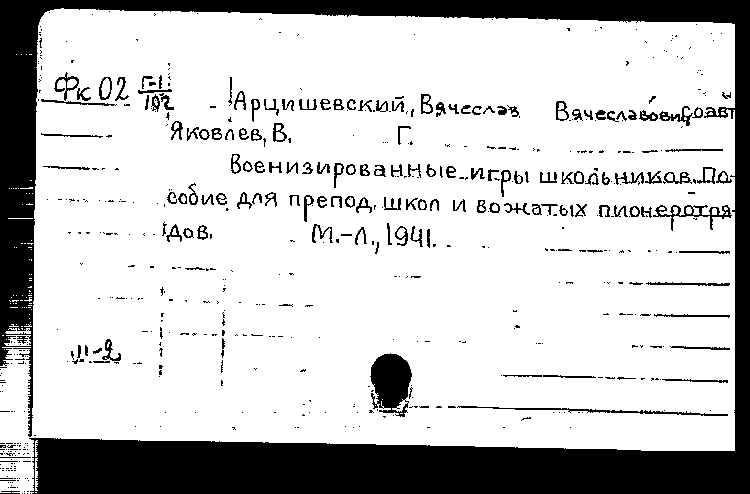 Фк 02 Г-1/102 Арцишевский, Вячеслав Вячеславович соавт
Яковлев, В. Г.
Военизированные игры школьников. По-
собие для препод. школ и вожатых пионеротря-
дов. М.-Л., 1941.